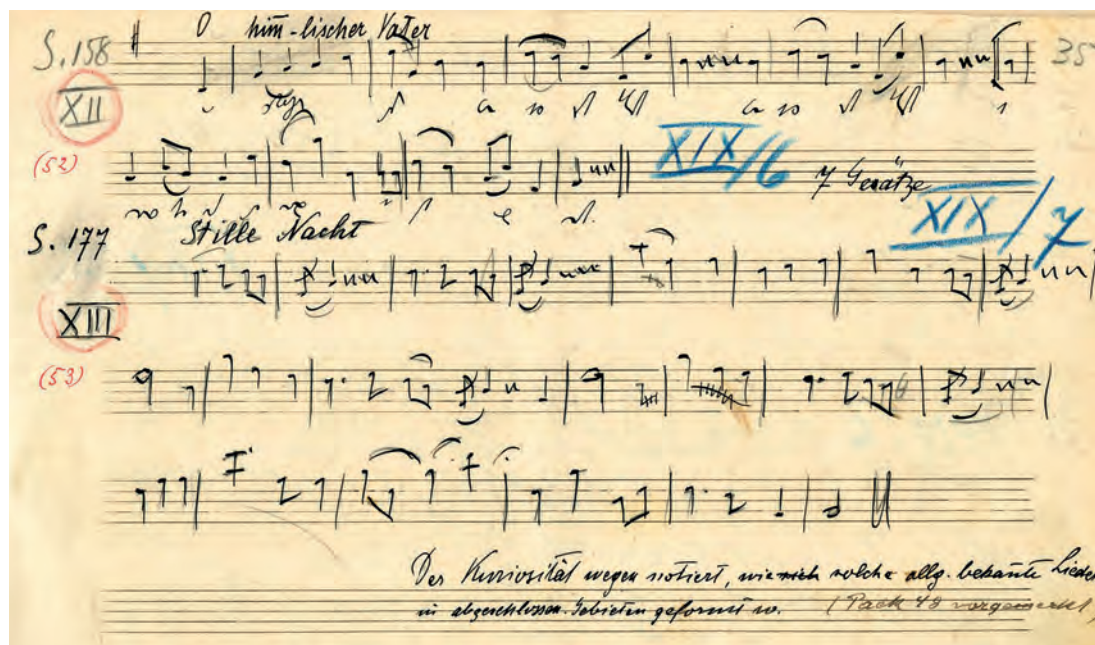 O him̄-lischer Vater
S. 158
35
XII
(52)
XIX/6
7 Gesätze
S. 177
Stille Nacht
XIX/7
XIII
(53)
Der Kuriosität wegen notiert, wie solche allg. bekan̄te Lieder
in abgeschlossen. Gebieten geformt w.
(Pack 48 vorgemerkt)